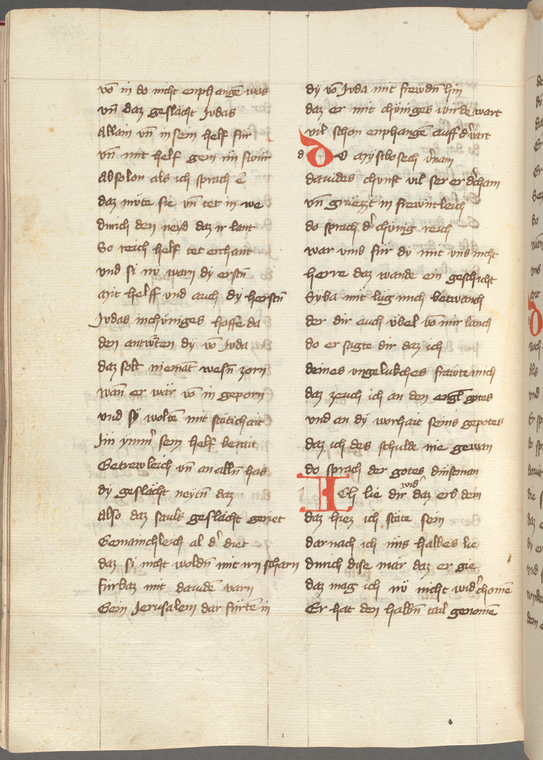 vō in do nicht enphangē was
vn̄ daz geslächt Judas
Allain vn̄ in sein helf für
vn̄ mit helf gein im swür
Absolon als ich sprach ē
daz müte sie vn̄ tet in we
durich den neyd daz ir lant
So reich helf tet erchant
vnd si nÿ warn dÿ erstn̄
mit helff vnd auch dÿ herstn̄
Judas in chüniges hoffe da
den antwrten dÿ vō Juda
daz solt niemāt wesn̄ zorn
wan er wär vō in geporn
vnd sÿ woltē mit stätichait
Im ymm̄ sein helf berait
Getrewleich vn̄ an alln̄ has
dÿ geslächt neycn̄ daz
Also daz sauls geslächt geriet
Gemainchleich al d' diet
daz si nicht woldn̄ mit irn scharn
fürbaz mit dauidē varn
Gein Jerusalem dar fürtē in
dÿ vō Juda mit frewdn̄ hin
daz er mit chüniges wirde wart
vil schon enphangen auff d' vart
do mÿsibosech v̄nam
dauides chvnft vil ser er d' cham
vn̄ grüezt in frewntleich
do sprach d' chünig reich
war vmb für dÿ mit vns nicht
herre daz wande ein geschicht
Syba mit lüg mich betwanch
der dir auch übel vō mir lanch
do er sagte dir daz ich
deines vngelükches frawte mich
daz zeuch ich an den engl gotes
vnd an dÿ worhait seins gepotes
daz ich des schulde nie gewan
do sprach der gotes dinstman
Ich lie dir wid' daz erb dein
daz hiez ich stäte sein
dar nach ich ims halbes lie
durich dise mär daz er gie
daz mag ich nü nicht wid' chomē
Er hat den halbn̄ tail genomē